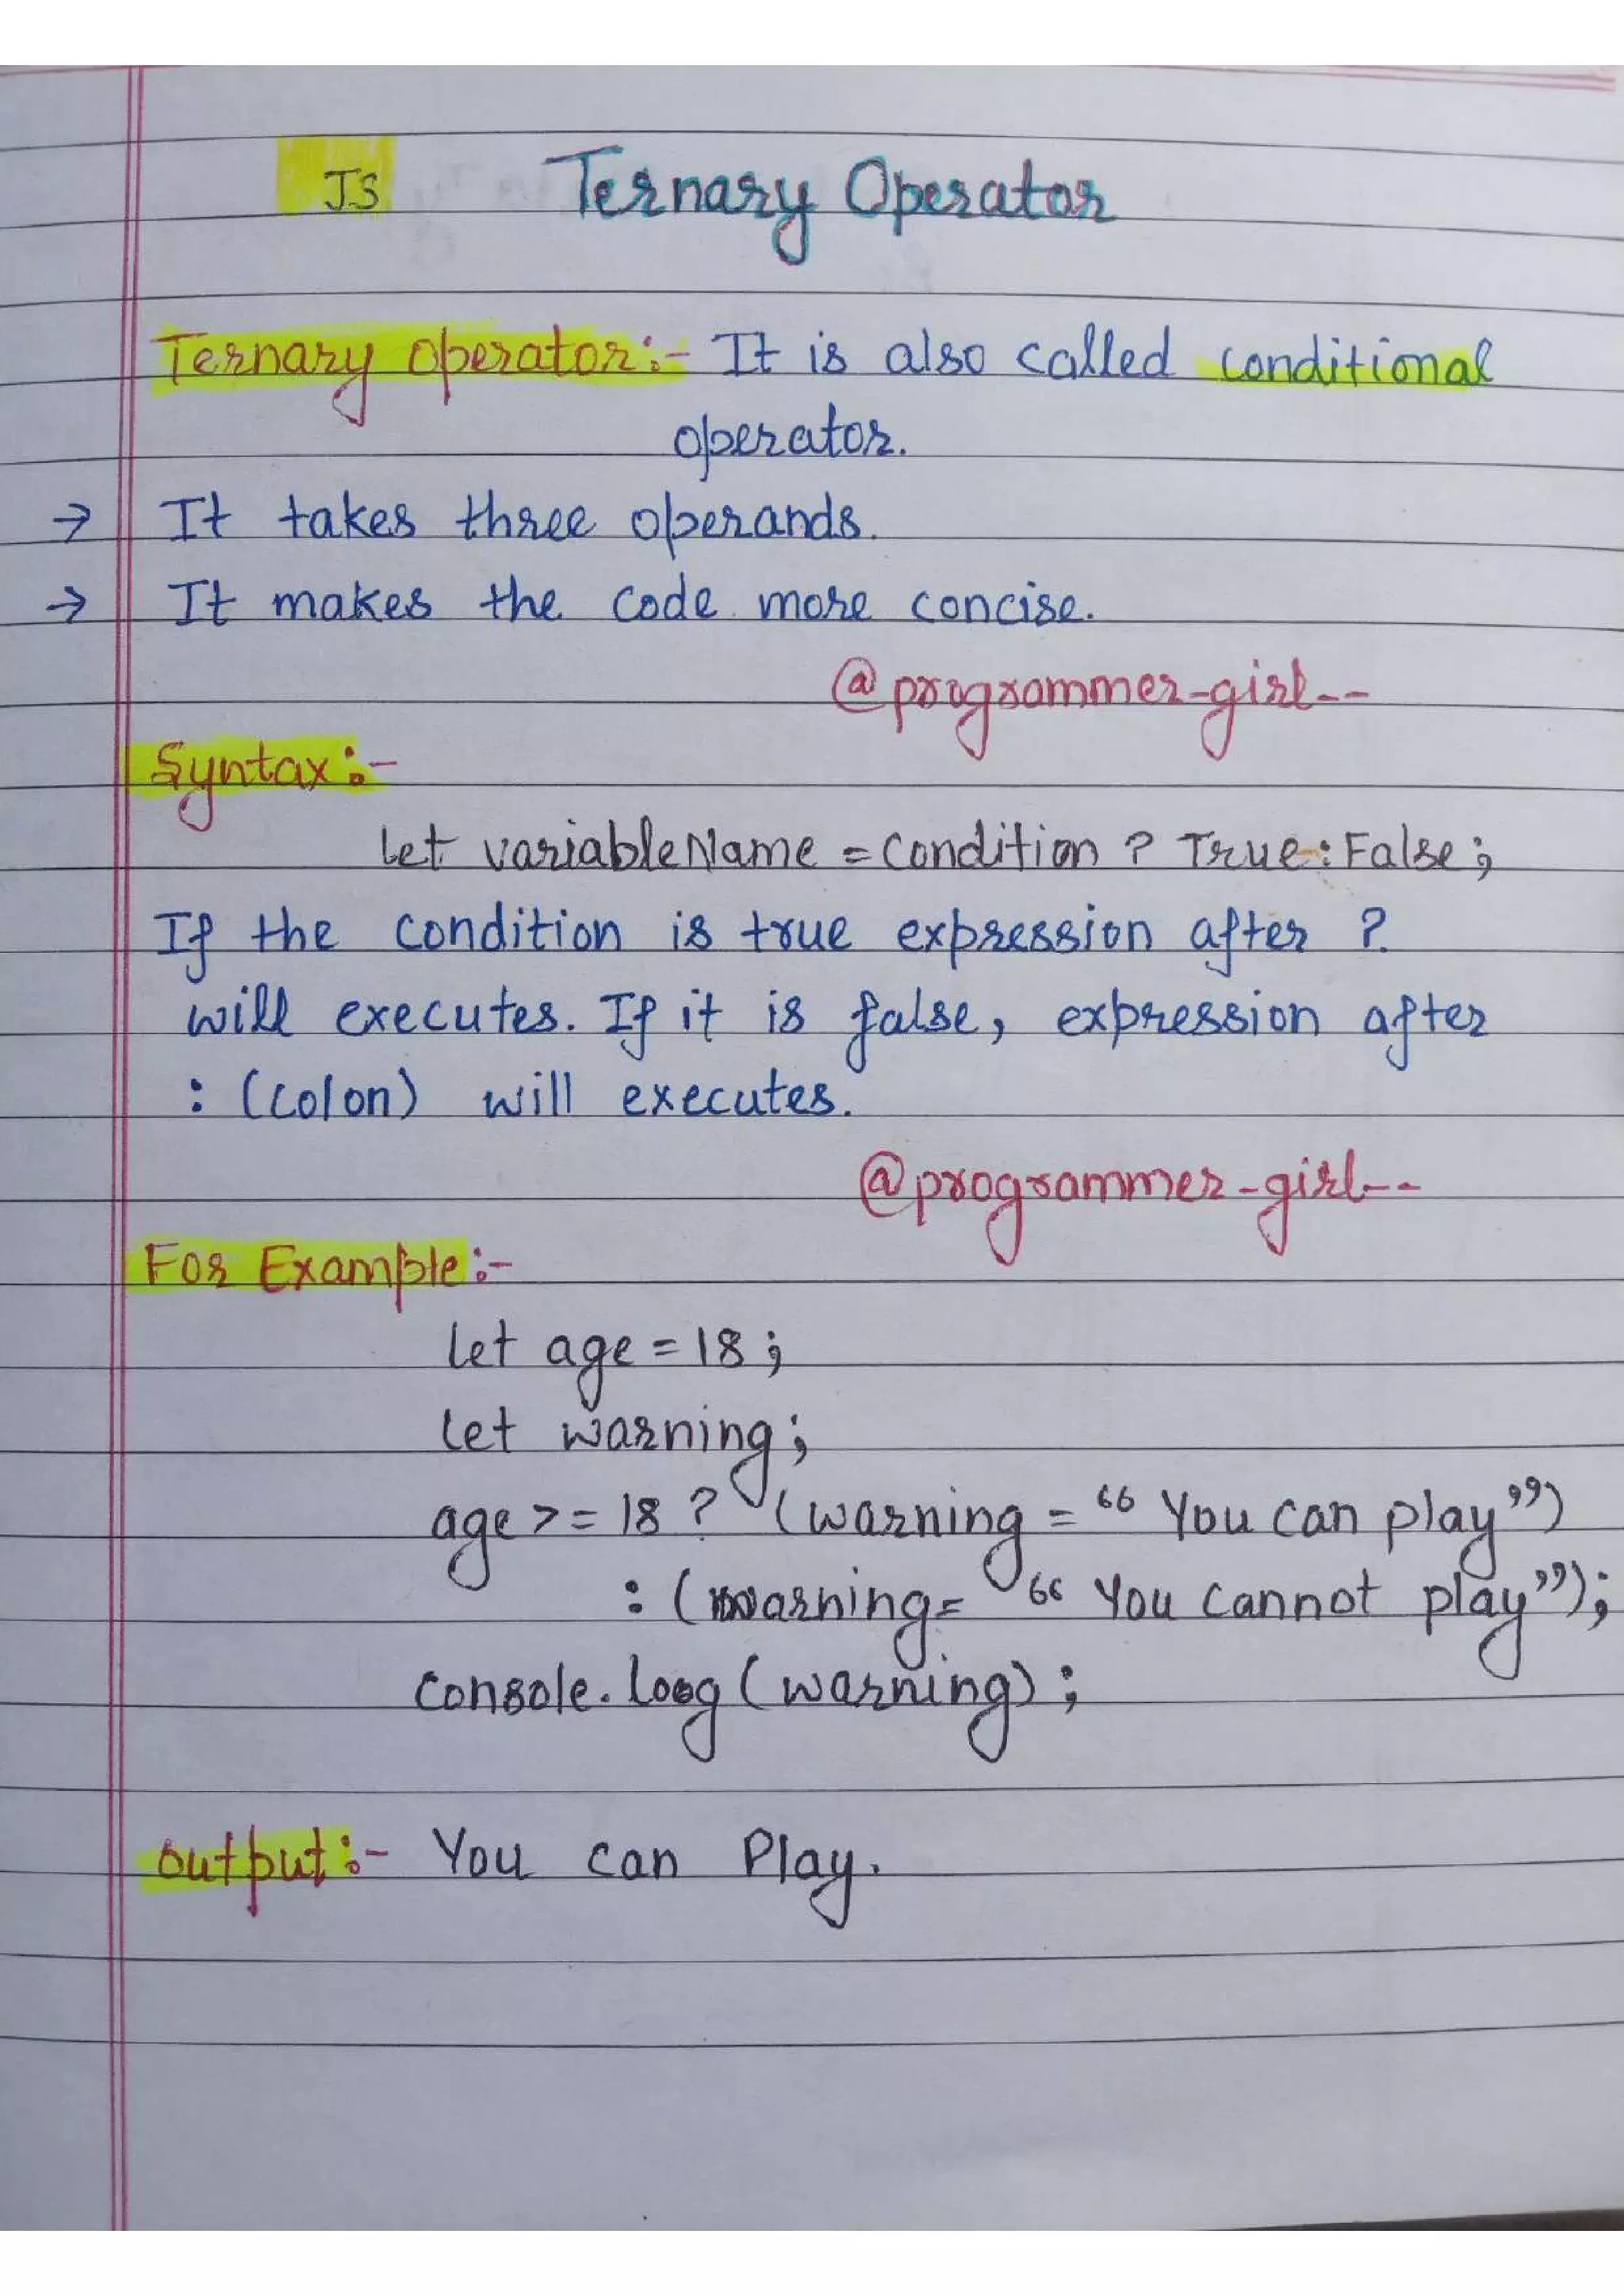 JS Ternary Operator
Ternary operator:- It is also called conditional
operator.
→ It takes three operands.
→ It makes the code more concise.
@programmer-girl--
Syntax:-
let variableName = condition ? True : False;
If the condition is true expression after ?
will executes. If it is false, expression after
: (colon) will executes.
@programmer-girl--
For Example:-
let age = 18;
let warning;
age >= 18 ? (warning = “You can play”)
: (warning = “You cannot play”);
console.log(warning);
output:- You can Play.